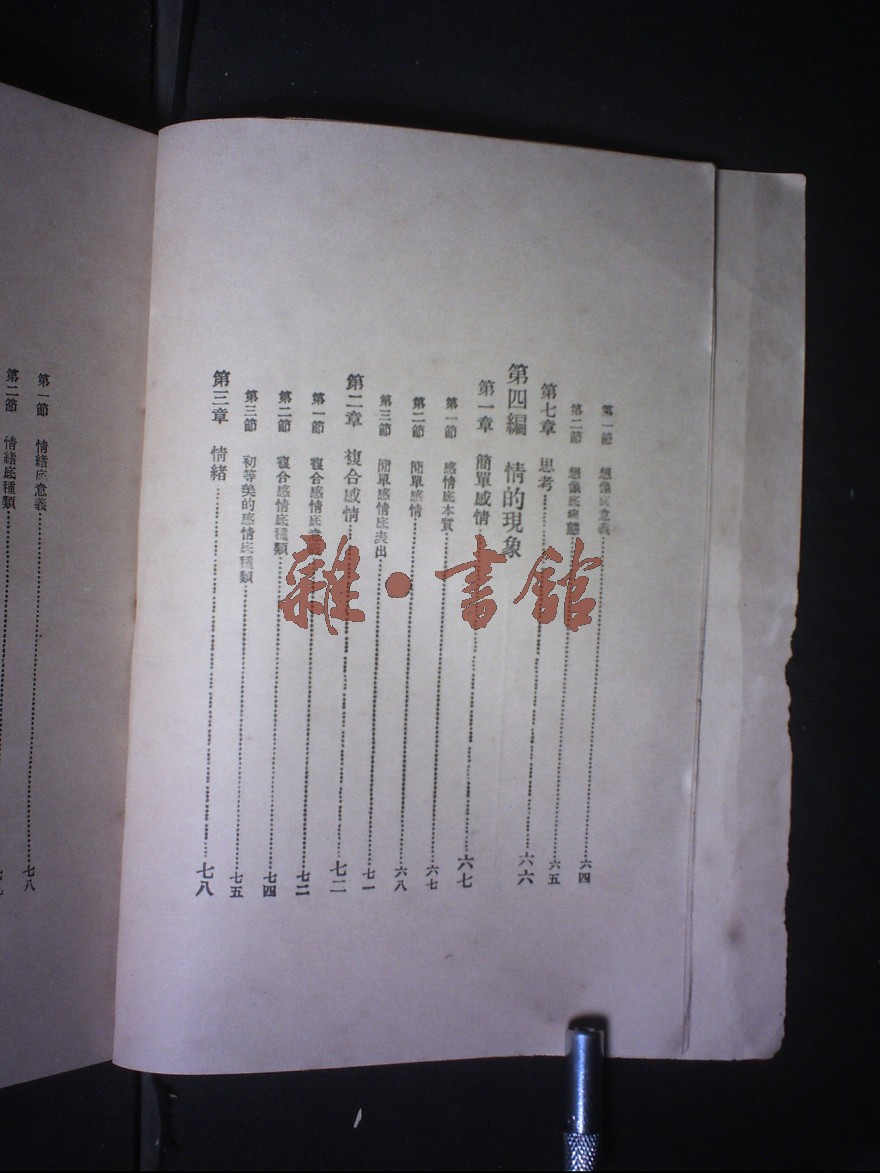 第一節　想像底意義……六四
第二節　想像底病態……六五
第七章　思考……六六
第四編　情的現象
第一章　簡單感情……六七
第一節　感情底本質……六七
第二節　簡單感情……六八
第三節　簡單感情底表出……七一
第二章　複合感情……七二
第一節　複合感情底……七二
第二節　複合感情底種類……七四
第三節　初等美的感情底種類……七五
第三章　情緒……七八
第一節　情緒底意義……七八
第二節　情緒底種類……七九
雜·書館